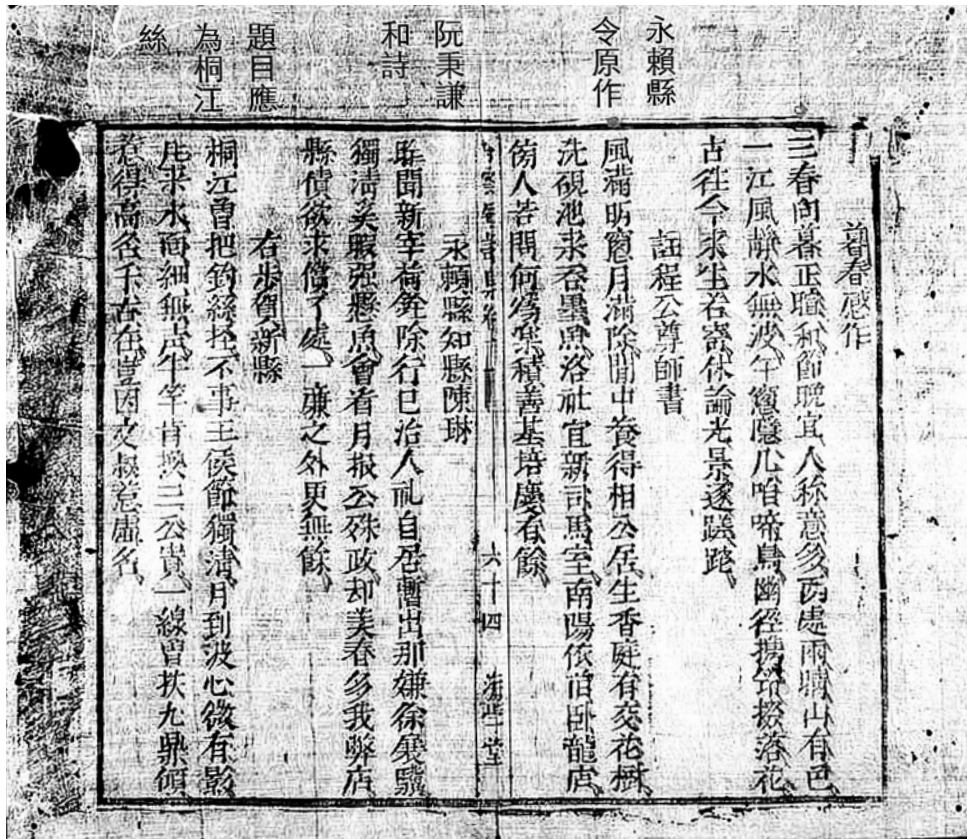 永賴縣
令原作
阮秉謙
和詩
題目應
為桐江
絲
暮春感作
三春向暮正暄和節晚宜人称意多西處雨晴山有色
一江風静水無波午窻隐几咱啼鳥幽徑携筇掇落花
古往今來生若寄休論光景逐蹉跎
註程公尊師書
風滿明窓月滿除閒中養得相公居生香庭有交花樹
洗硯池求吞墨魚洛社宜新司馬室南陽依旧卧龍庐
傍人若問何為業積善基培慶有餘
六十四
堂
永賴縣知縣陳琳
聞新宰荷銓除行已治人礼自居暫出那嫌徐展驥
獨清奚暇强懸魚會看月报公殊政却羡春多我弊店
縣債欲求償了處一廉之外更無餘
右步賀新縣
桐江曾把釣絲挂不事王侯節獨清月到波心微有影
風來水面細無声半竿肯換三公貴一線曾扶九鼎傾
得高名千古在豈因文叔惹虛名